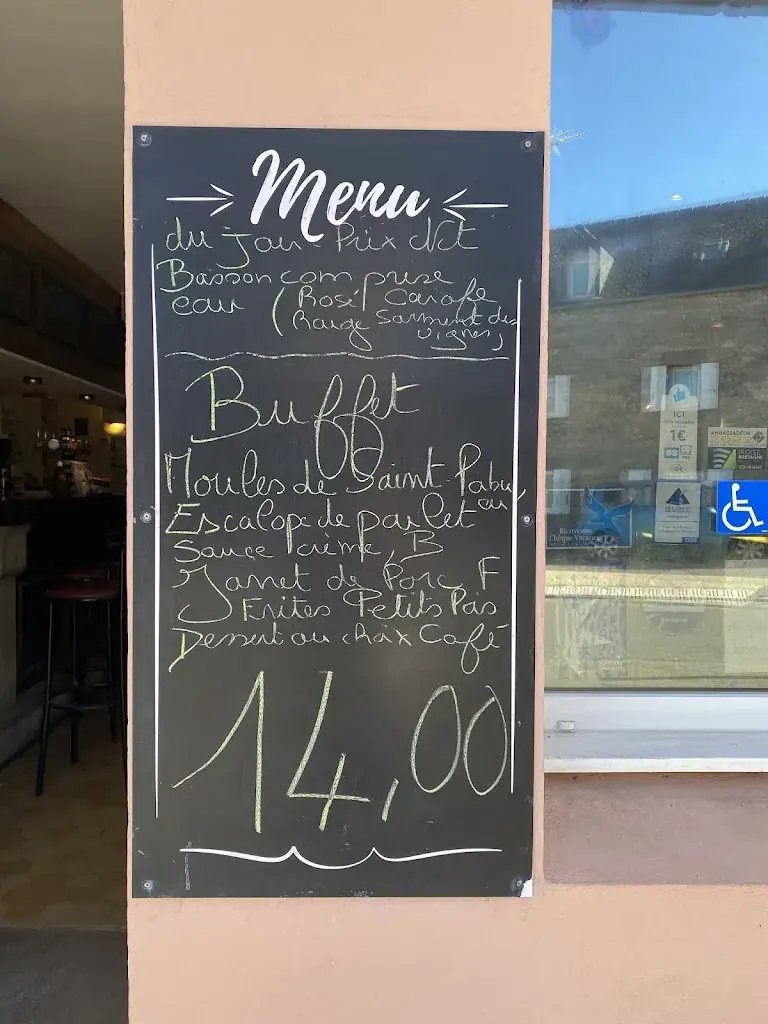 Menu
du Jour Prix Net
Boisson comprise
eau (Rosé Carafe
(Rouge Sarment des
vignes)
Buffet
Moules de Saint Pabu,
ou
Escalope de poulet
Sauce crème, B
Jarret de Porc F
Frites Petits Pois
Dessert au choix Café
14,00
ICI
1€
AMBASSADEUR
IROISE
BRETAGNE
TOURISME
Bienvenue
Chèque-Vacances